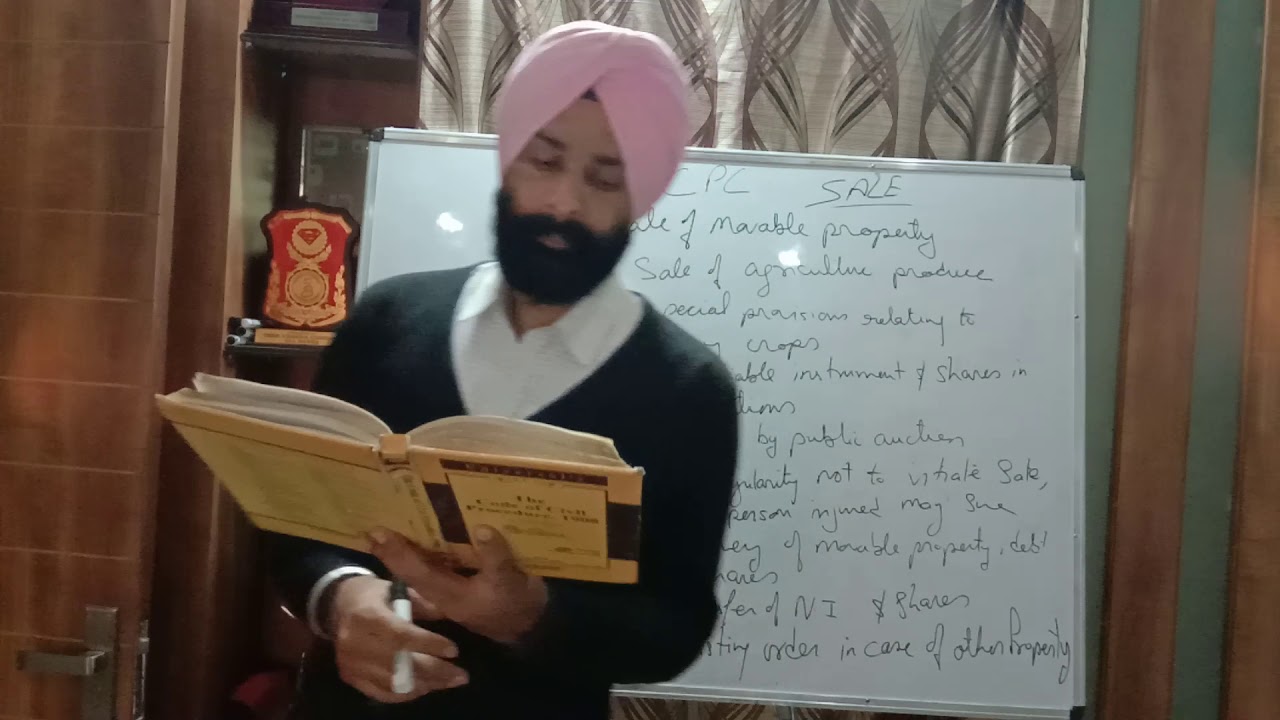 CPC SALE
ale of Movable property
Sale of agriculture produce
pecial provisions relating to
crops
able instrument & shares in
tions
by public auction
gularity not to vitiate Sale,
person injured may Sue
very of movable property, debt
hares
fer of N I & Shares
sting order in case of other Property
Universal's
The
Code of Civil
Procedure, 1908